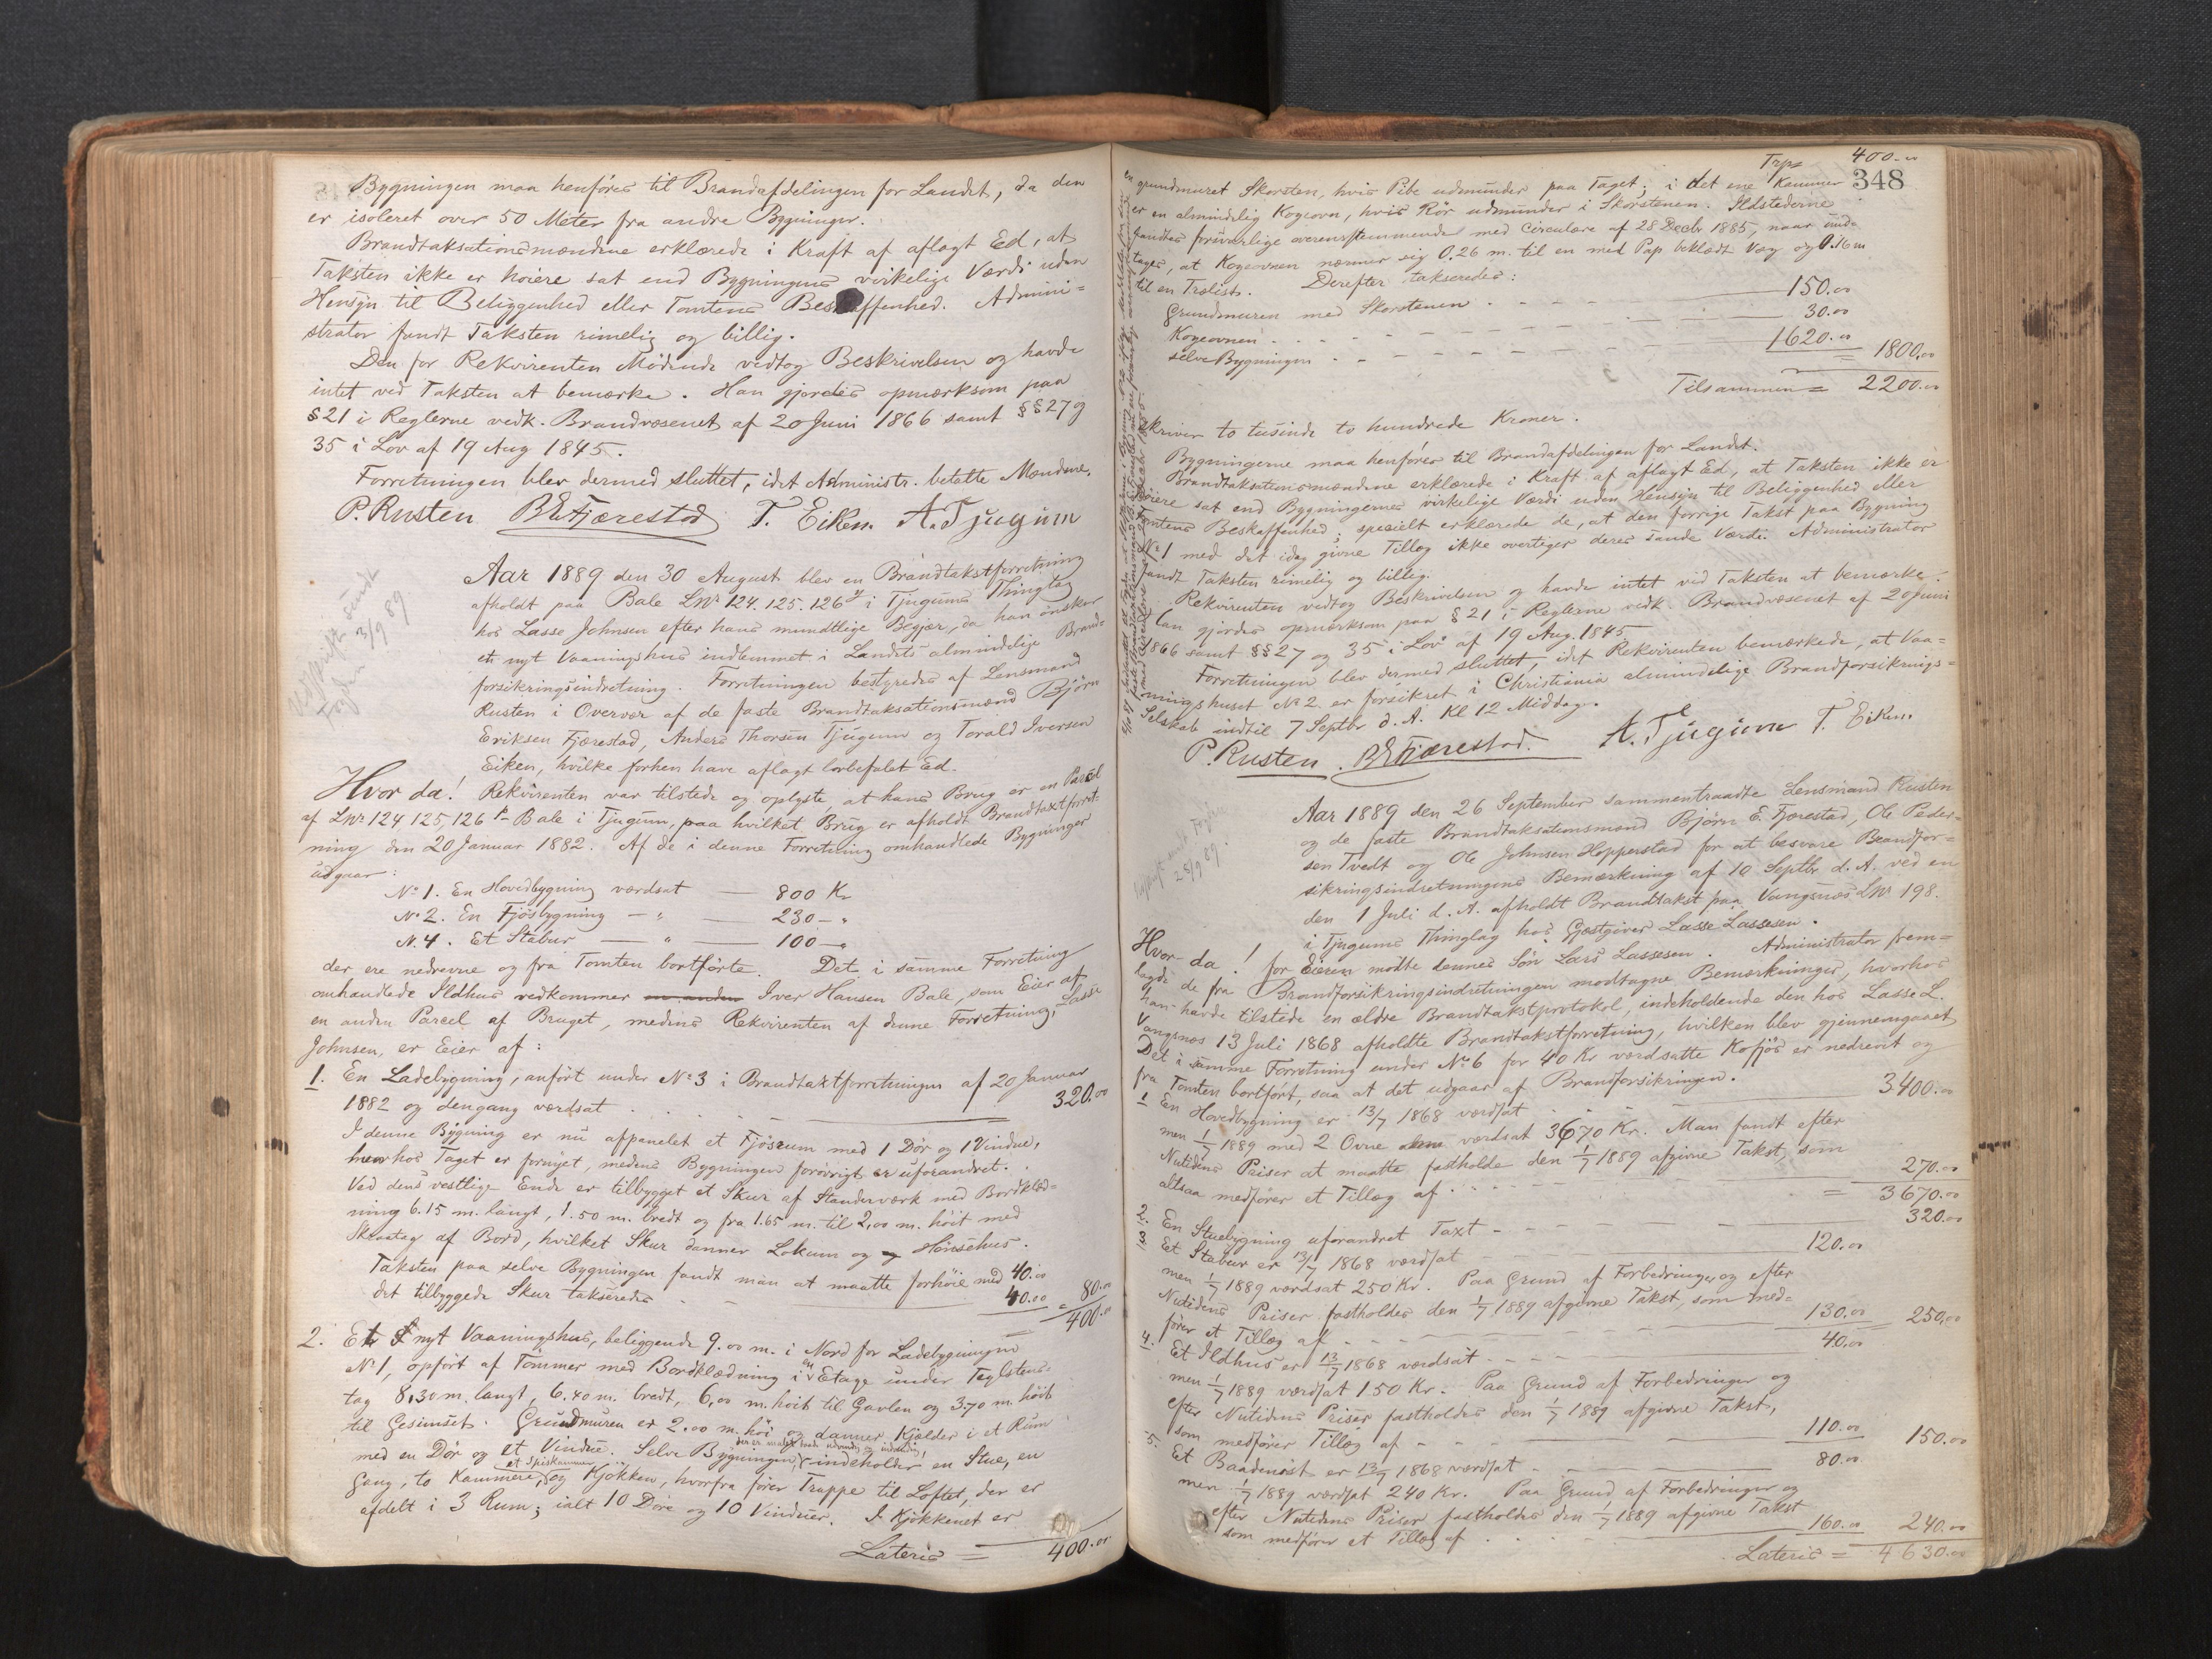 Bygningen maa henføres til Brandafdelingen for Landet, da den
er isoleret over 50 Meter fra andre Bygninger.
Brandtaksationsmændene erklærede i Kraft af aflagt Ed, at
Taksten ikke er høiere sat end Bygningens virkelige Værdi uden
Hensyn til Beliggenhed eller Tomtens Beskaffenhed. Admini=
strator fandt Taksten rimelig og billig.
Den for Rekvirenten Mødende vedtog Beskrivelsen og havde
intet ved Taksten at bemærke. Han gjordes opmærksom paa
§21 i Reglerne vedk. Brandvæsenet af 20 Juni 1866 samt §§27 og
35 i Lov af 19 Aug 1845.
Forretningen blev dermed sluttet, idet Administr. betalte Mændene.
P. Rusten BEFjærestad T. Eiken. A. Tjugum
Afskrift sendt
Fogden 3/9 89
Aar 1889 den 30 August blev en Brandtakstforretning
afholdt paa Bale LNr 124. 125. 126 i Tjugums Thinglag
hos Lasse Johnsen efter hans mundtlige Begjær, da han ønsker
et nyt Vaaningshus indlemmet i Landets almindelige Brand=
forsikringsindretning. Forretningen bestyredes af Lensmand
Rusten i Overvær af de faste Brandtaksationsmænd Bjørn
Eriksen Fjærestad, Anders Thorsen Tjugum og Torald Iversen
Eiken, hvilke forhen have aflagt lovbefalet Ed.
Hvor da! Rekvirenten var tilstede og oplyste, at hans Brug er en Parcel
af LNr 124, 125, 126 Bale i Tjugum, paa hvilket Brug er afholdt Brandtaxtforret=
ning den 20 Januar 1882. Af de i denne Forretning omhandlede Bygninger
udgaar:
No 1. En Hovedbygning værdsat — 800 Kr
No 2. En Fjøsbygning — " — 230 — "
N. 4. Et Stabur — " — 100 — "
der ere nedrevne og fra Tomten bortførte. Det i samme Forretning
omhandlede Ildhus vedkommer en anden Iver Hansen Bale, som Eier af
en anden Parcel af Bruget, medens Rekvirenten af denne Forretning, Lasse
Johnsen, er Eier af:
1. En Ladebygning, anført under No 3 i Brandtaxtforretningen af 20 Januar
1882 og dengang værdsat . . . . 320.00
I denne Bygning er nu afpanelet et Fjøsrum med 1 Dør og 1 Vindue,
hvorhos Taget er fornyet, medens Bygningen forøvrigt er uforandret.
Ved dens vestlige Ende er tilbygget et Skur af Standerværk med Bordklæd=
ning 6.15 m. langt, 1.50 m. bredt og fra 1.65 m. til 2,00 m. høit med
Skraatag af Bord, hvilket Skur danner Lokum og Hønsehus.
Taksten paa selve Bygningen fandt man at maatte forhøie med 40.00
det tilbyggede Skur takseredes . . 40.00 = 80.00
= 400.00
2. Et nyt Vaaningshus, beliggende 9.00 m. i Nord for Ladebygningen
No 1, opført af Tømmer med Bordklædning i en Etage under Teglstens=
tag 8,30 m. langt, 6.40 m. bredt, 6,00 m. høit til Gavlen og 3.70 m. høit
til Gesimset. Grundmuren er 2.00 m. høi og danner Kjælder i et Rum
med en Dør og et Vindue. Selve Bygningen, der er malet baade udvendig og indvendig, indeholder en Stue, en
Gang, to Kammere, et Spiskammer og Kjøkken, hvorfra fører Trappe til Loftet, der er
afdelt i 3 Rum; ialt 10 Døre og 10 Vinduer. I Kjøkkenet er
Lateris = 400.00
Trp 400.00
348
en grundmuret Skorsten, hvis Pibe udmunder paa Taget; i det ene Kammer
er en almindelig Kogeovn, hvis Rør udmunder i Skorstenen. Ildstederne
fandtes forsvarlige overensstemmende med Circulære af 28 Decbr 1885, naar und=
tages, at Kogeovnen nærmer sig 0.26 m. til en med Pap beklædt Væg og 0.16 m
til en Trælist. Derefter takseredes:
Grundmuren med Skorstenen . . . 150.00
Kogeovnen . . . 30.00
selve Bygningen . . . 1620.00 = 1800.00
Tilsammen = 2200.00
skriver to tusinde to hundrede Kroner.
Bygningerne maa henføres til Brandafdelingen for Landet.
Brandtaksationsmændene erklærede i Kraft af aflagt Ed, at Taksten ikke er
høiere sat end Bygningernes virkelige Værdi uden Hensyn til Beliggenhed eller
Tomtens Beskaffenhed; specielt erklærede de, at den forrige Takst paa Bygning
No 1 med det idag givne Tillæg ikke overstiger deres sande Værdi. Administrator
fandt Taksten rimelig og billig.
Rekvirenten vedtog Beskrivelsen og havde intet ved Taksten at bemærke.
Han gjordes opmærksom paa §21 i Reglerne vedk. Brandvæsenet af 20 Juni
1866 samt §§27 og 35 i Lov af 19 Aug. 1845.
Forretningen blev dermed sluttet, idet Rekvirenten bemærkede, at Vaa=
ningshuset No 2 er forsikret i Christiania almindelige Brandforsikrings=
Selskab indtil 7 Septbr d. A. Kl 12 Middag.
P. Rusten. BEFjærestad. A. Tjugum T. Eiken.
Afskrift sendt Fogden
28/9 89.
Aar 1889 den 26 September sammentraadte Lensmand Rusten
og de faste Brandtaksationsmænd Bjørn E. Fjærestad, Ole Peder=
sen Tvedt og Ole Johnsen Hopperstad for at besvare Brandfor=
sikringsindretningens Bemærkning af 10 Septbr. d. A. ved en
den 1 Juli d. A. afholdt Brandtakst paa Vangsnæs LNr 198.
i Tjugums Thinglag hos Gjæstgiver Lasse Lassesen.
Hvor da! for Eieren mødte dennes Søn Lars Lassesen. Administrator frem=
lagde de fra Brandforsikringsindretningen modtagne Bemærkninger, hvorhos
han havde tilstede en ældre Brandtakstprotokol, indeholdende den hos Lasse L.
Vangsnes 13 Juli 1868 afholdte Brandtakstforretning, hvilken blev gjennemgaaet
Det i samme Forretning under No 6 for 40 Kr værdsatte Kofjøs er nedrevet og
fra Tomten bortført, saa at det udgaar af Brandforsikringen.
1 En Hovedbygning er 13/7 1868 værdsat . . . 3400.00
men 1/7 1889 med 2 Ovne værdsat 3670 Kr. Man fandt efter
Nutidens Priser at maatte fastholde den 1/7 1889 afgivne Takst, som
altsaa medfører et Tillæg af . . . 270.00
= 3670.00
2. En Stuebygning uforandret Taxt . . . 320.00
3 Et Stabur er 13/7 1868 værdsat . . . 120.00
men 1/7 1889 værdsat 250 Kr. Paa Grund af Forbedringer og efter
Nutidens Priser fastholdes den 1/7 1889 afgivne Takst, som med=
fører et Tillæg af . . . 130.00 250.00
4. Et Ildhus er 13/7 1868 værdsat . . . 40.00
men 1/7 1889 værdsat 150 Kr. Paa Grund af Forbedringer og
efter Nutidens Priser fastholdes den 1/7 1889 afgivne Takst,
som medfører Tillæg af . . . 110.00 150.00
5. Et Baadenøst er 13/7 1868 værdsat . . . 80.00
men 1/7 1889 værdsat 240 Kr. Paa Grund af Forbedringer og
efter Nutidens Priser fastholdes den 1/7 1889 afgivne Takst
som medfører et Tillæg af . . . 160.00 240.00
Lateris = 4630.00